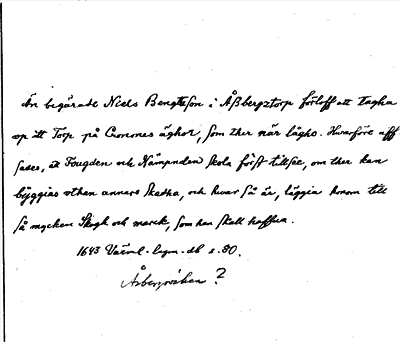 Än begärade Niels Bengtsson i Åßbergztorp förloff att tagha
op itt Torp på Cronones äghor, som ther när lågho. Hwarföre aff
sades, at Fougden och Nämpnden skola först tillsee, om ther kan
byggias uthan annars skadha, och hwar så är, läggia honom till
så mycken skogh och marck, som han skall haffua.
1643 Värml. lagm. db s. 80.
?